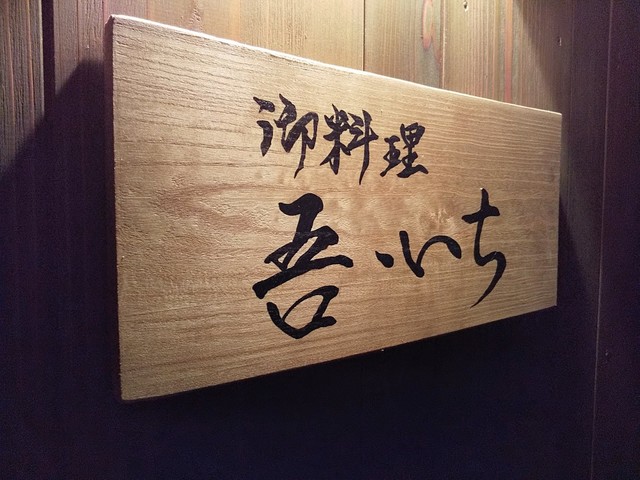 御料理
吾・いち